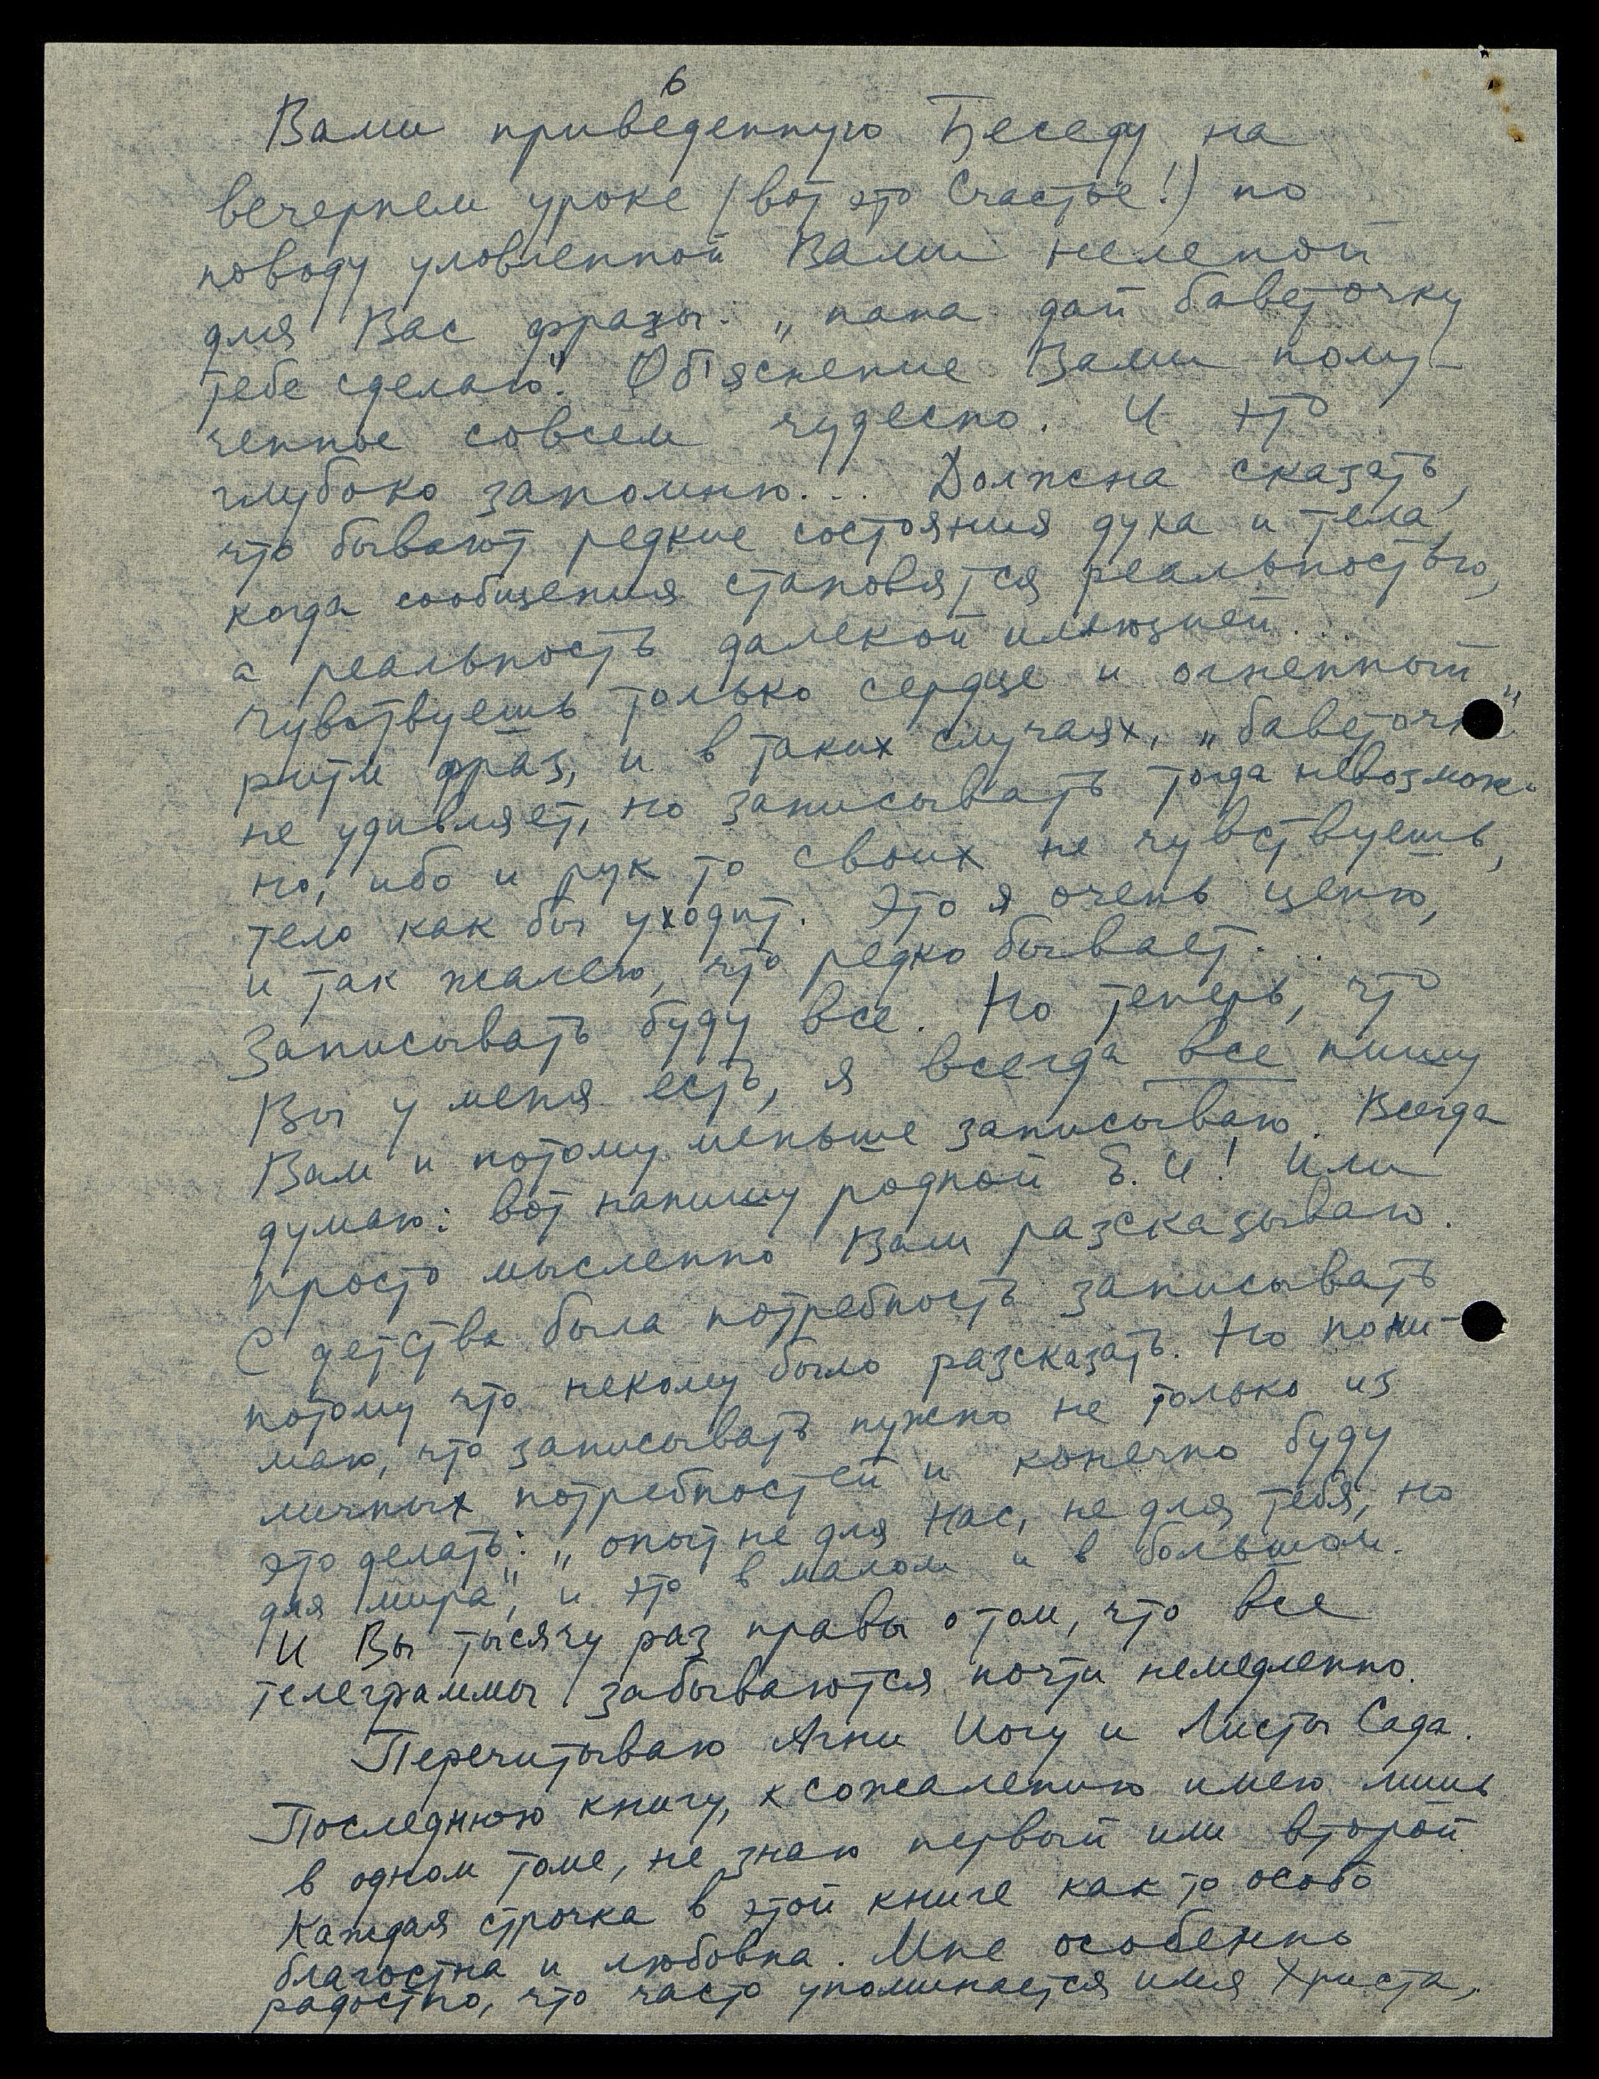 6
Вами приведенную Беседу на
вечернем уроке (вот это Счастье!) по
поводу уловленной Вами нелепой
для Вас фразы: „папа дай баветочку
тебе сделаю“. Объяснение Вами полу-
ченное совсем чудесно. И это
глубоко запомню... Должна сказать,
что бывают редкие состояния духа и тела,
когда сообщения становятся реальностью,
а реальность далекой иллюзией...
Чувствуешь только сердце и огненный
ритм фраз, и в таких случаях, „баветочка“
не удивляет, но записывать тогда невозмож-
но, ибо и рук то своих не чувствуешь,
тело как бы уходит. Это я очень ценю,
и так жалею, что редко бывает...
Записывать буду все. Но теперь, что
Вы у меня есть, я всегда все пишу
Вам и потому меньше записываю. Всегда
думаю: вот напишу родной Е.И! Или
просто мысленно Вам разсказываю.
С детства была потребность записывать
потому что некому было разсказать. Но пони-
маю, что записывать нужно не только из
личных потребностей и конечно буду
это делать: „опыт не для Нас, не для тебя, но
для мира“, и это в малом и в большом.
И Вы тысячу раз правы о том, что все
телеграммы забываются почти немедленно.
Перечитываю Агни Иогу и Листы Сада.
Последнюю книгу, к сожалению имею лишь
в одном томе, не знаю первый или второй.
Каждая строчка в этой книге как то особо
благостна и любовна. Мне особенно
радостно, что часто упоминается имя Христа,